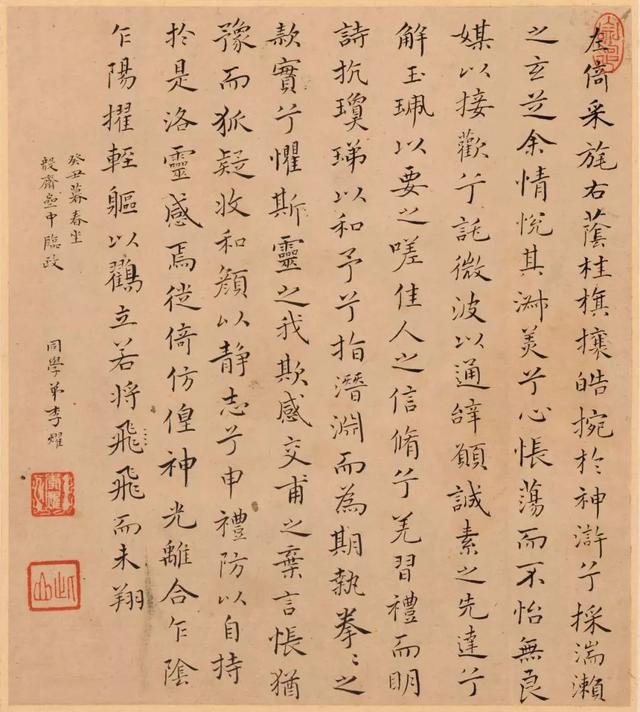 左倚采旄右蔭桂旗攘皓捥於神滸兮採湍瀨
之玄芝余情悅其淑美兮心悵蕩而不怡無良
媒以接歡兮託微波以通辭願誠素之先達兮
解玉珮以要之嗟佳人之信脩兮羌習禮而明
詩抗瓊珶以和予兮指潛淵而為期執拳〻之
款實兮懼斯靈之我欺感交甫之棄言悵猶
豫而狐疑收和顏以静志兮申禮防以自持
於是洛靈感焉徙倚仿偟神光離合乍陰
乍陽擢輕軀以鶴立若將飛飛而未翔
癸丑暮春坐
毅齋中臨政
同學弟李耀